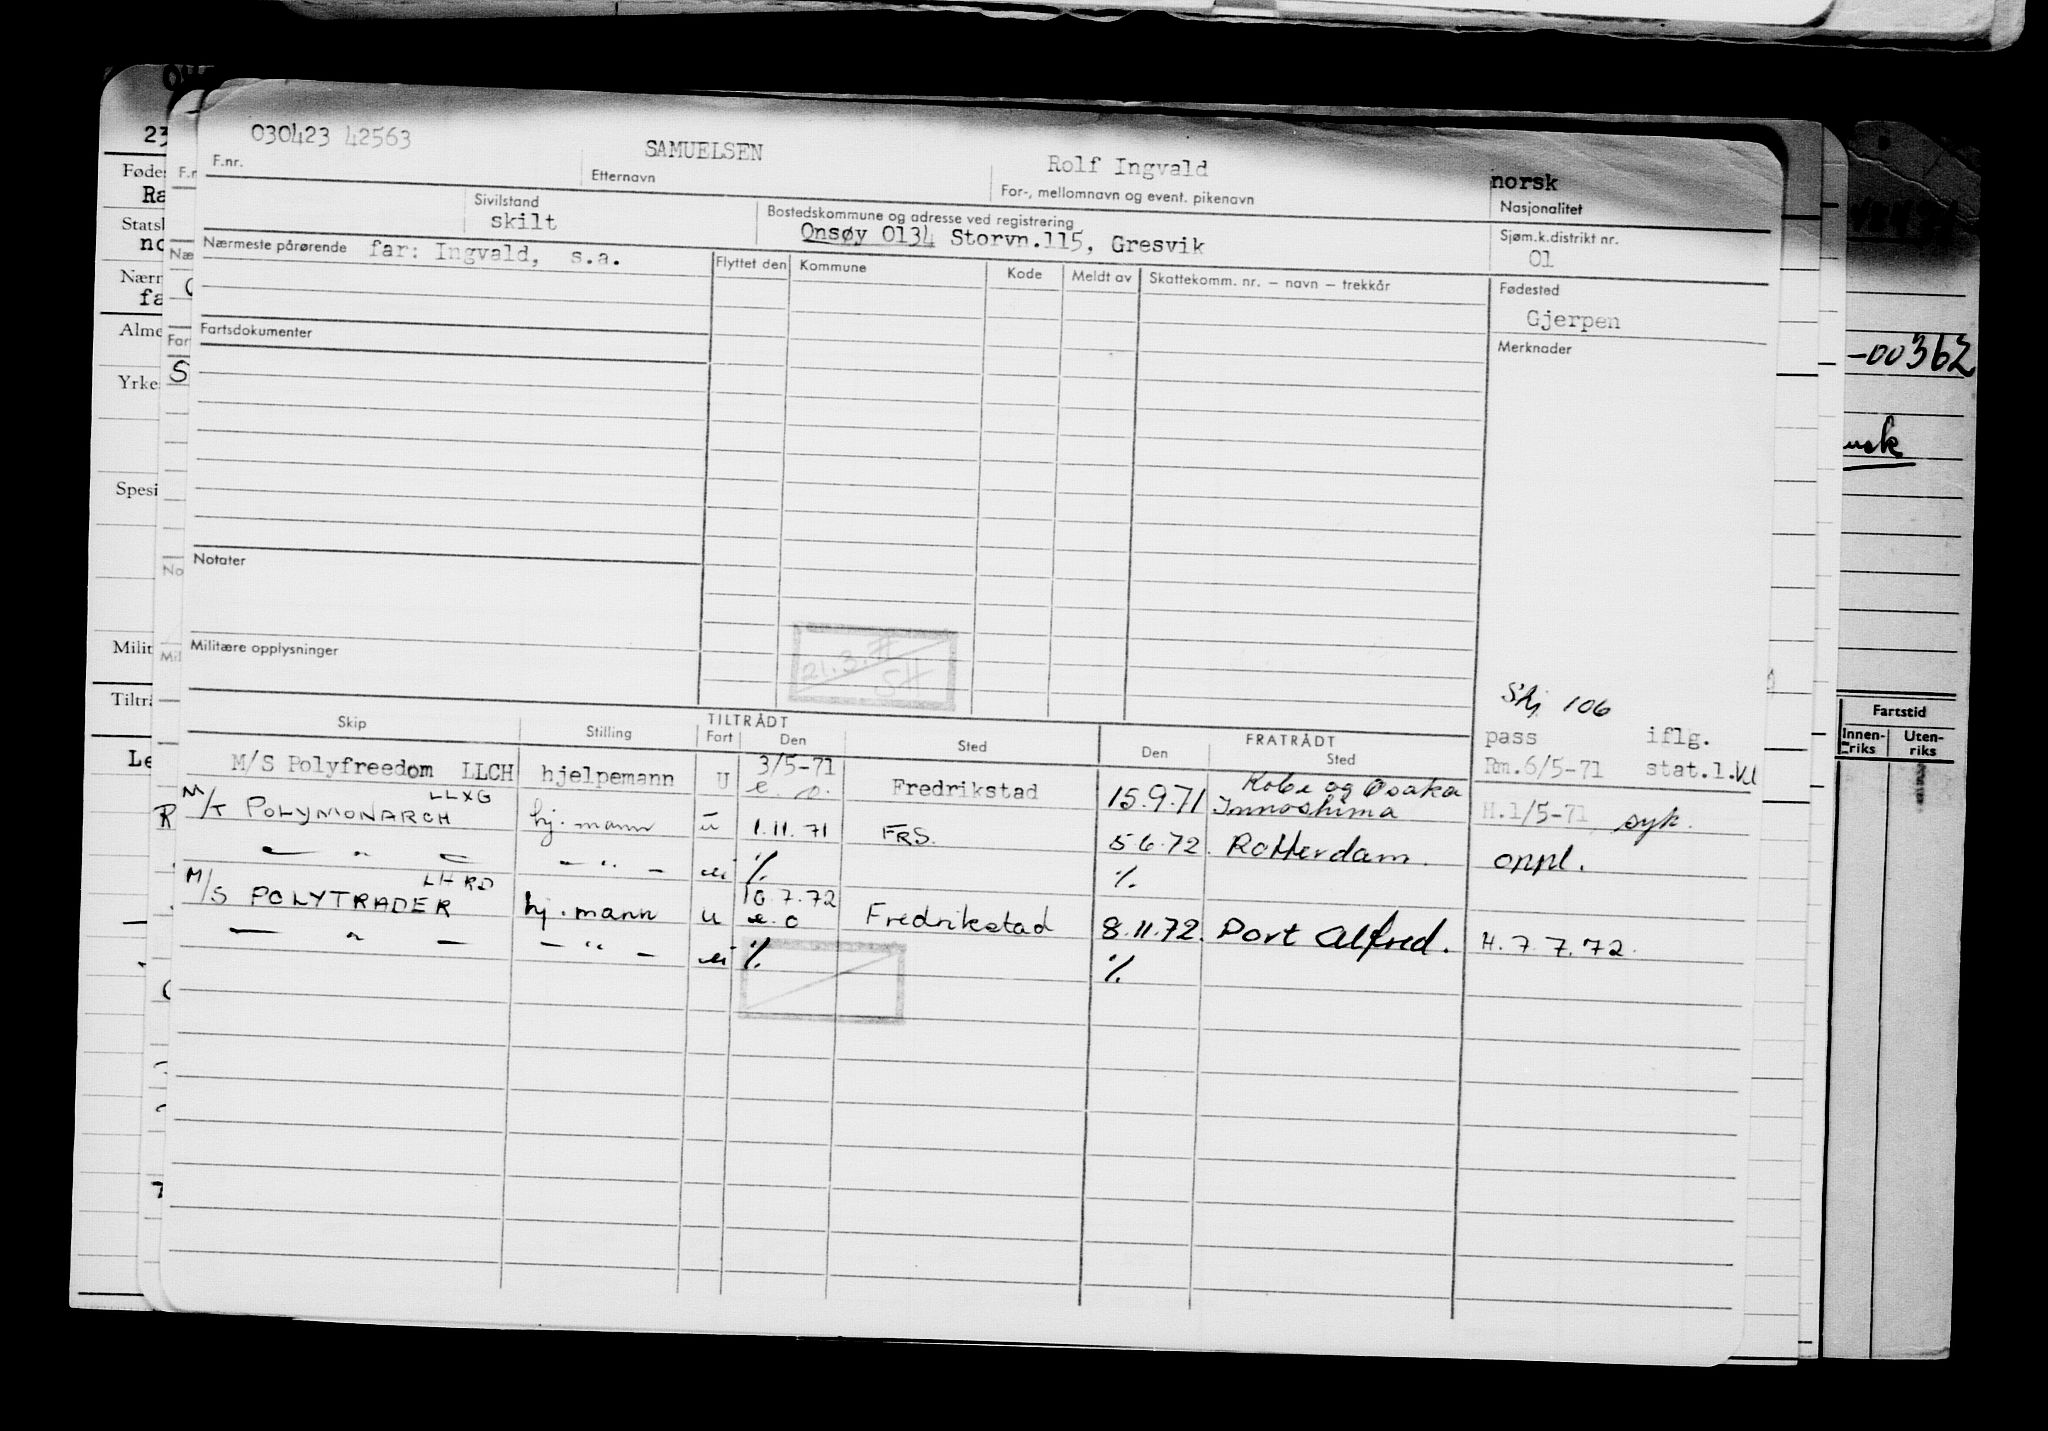 030423 42563 SAMUELSEN Rolf Ingvald norsk
F.nr. Etternavn For-, mellomnavn og event. pikenavn Nasjonalitet
Sivilstand Bostedskommune og adresse ved registrering Sjøm.k.distrikt nr.
skilt Onsøy 0134 Storvn.115, Gresvik 01
Nærmeste pårørende far: Ingvald, s.a. Flyttet den Kommune Kode Meldt av Skattekomm. nr. – navn – trekkår Fødested
Gjerpen
Fartsdokumenter Merknader
Notater
Militære opplysninger
21.3.
SH
106
TILTRÅDT FRATRÅDT
Skip Stilling Fart Den Sted Den Sted
pass iflg.
Rm.6/5-71 stat.l.
M/S Polyfreedom LLCH hjelpemann U 3/5-71 e. o. Fredrikstad 15.9.71 Kobe og Osaka Innoshima H.1/5-71 syk.
R M/T POLYMONARCH LLXG hj.mann u 1.11.71 FRS. 5.6.72. Rotterdam. oppl.
— " — — " — ei % %
M/S POLYTRADER LHRD hj.mann u 10.7.72 e.o Fredrikstad 8.11.72. Port Alfred. H.7.7.72.
— " — — " — ei % %
-00362
Fartstid
Innenriks Utenriks
23
Føde
Ra
Stats
no
Nærm
fa
Alme
Yrke
Spesi
Milit
Tiltr
Le
F.n
Næ
Far
S
No
Mil